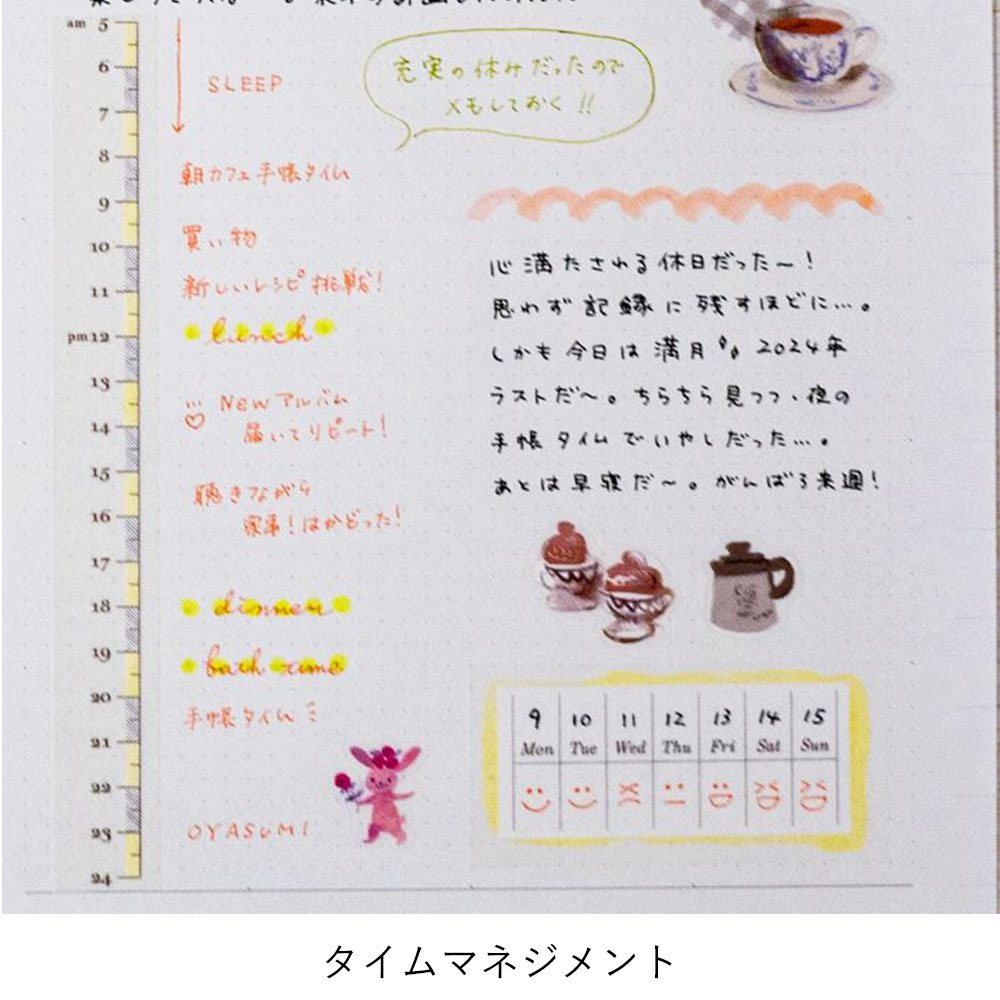 am 5
6
7
8
9
10
11
pm 12
13
14
15
16
17
18
19
20
21
22
23
24
SLEEP
朝カフェ手帳タイム
買い物
新しいレシピ挑戦!
lunch
Newアルバム
届いてリピート!
聴きながら
家事!はかどった!
dinner
bath time
手帳タイム
OYASUMI
充実の休みだったので
メモしておく!!
心満たされる休日だった〜!
思わず記録に残すほどに…。
しかも今日は満月 2024年
ラストだ〜。ちらちら見つつ、夜の
手帳タイムでいやしだった…。
あとは早寝だ〜。がんばろ来週!
9 10 11 12 13 14 15
Mon Tue Wed Thu Fri Sat Sun
タイムマネジメント